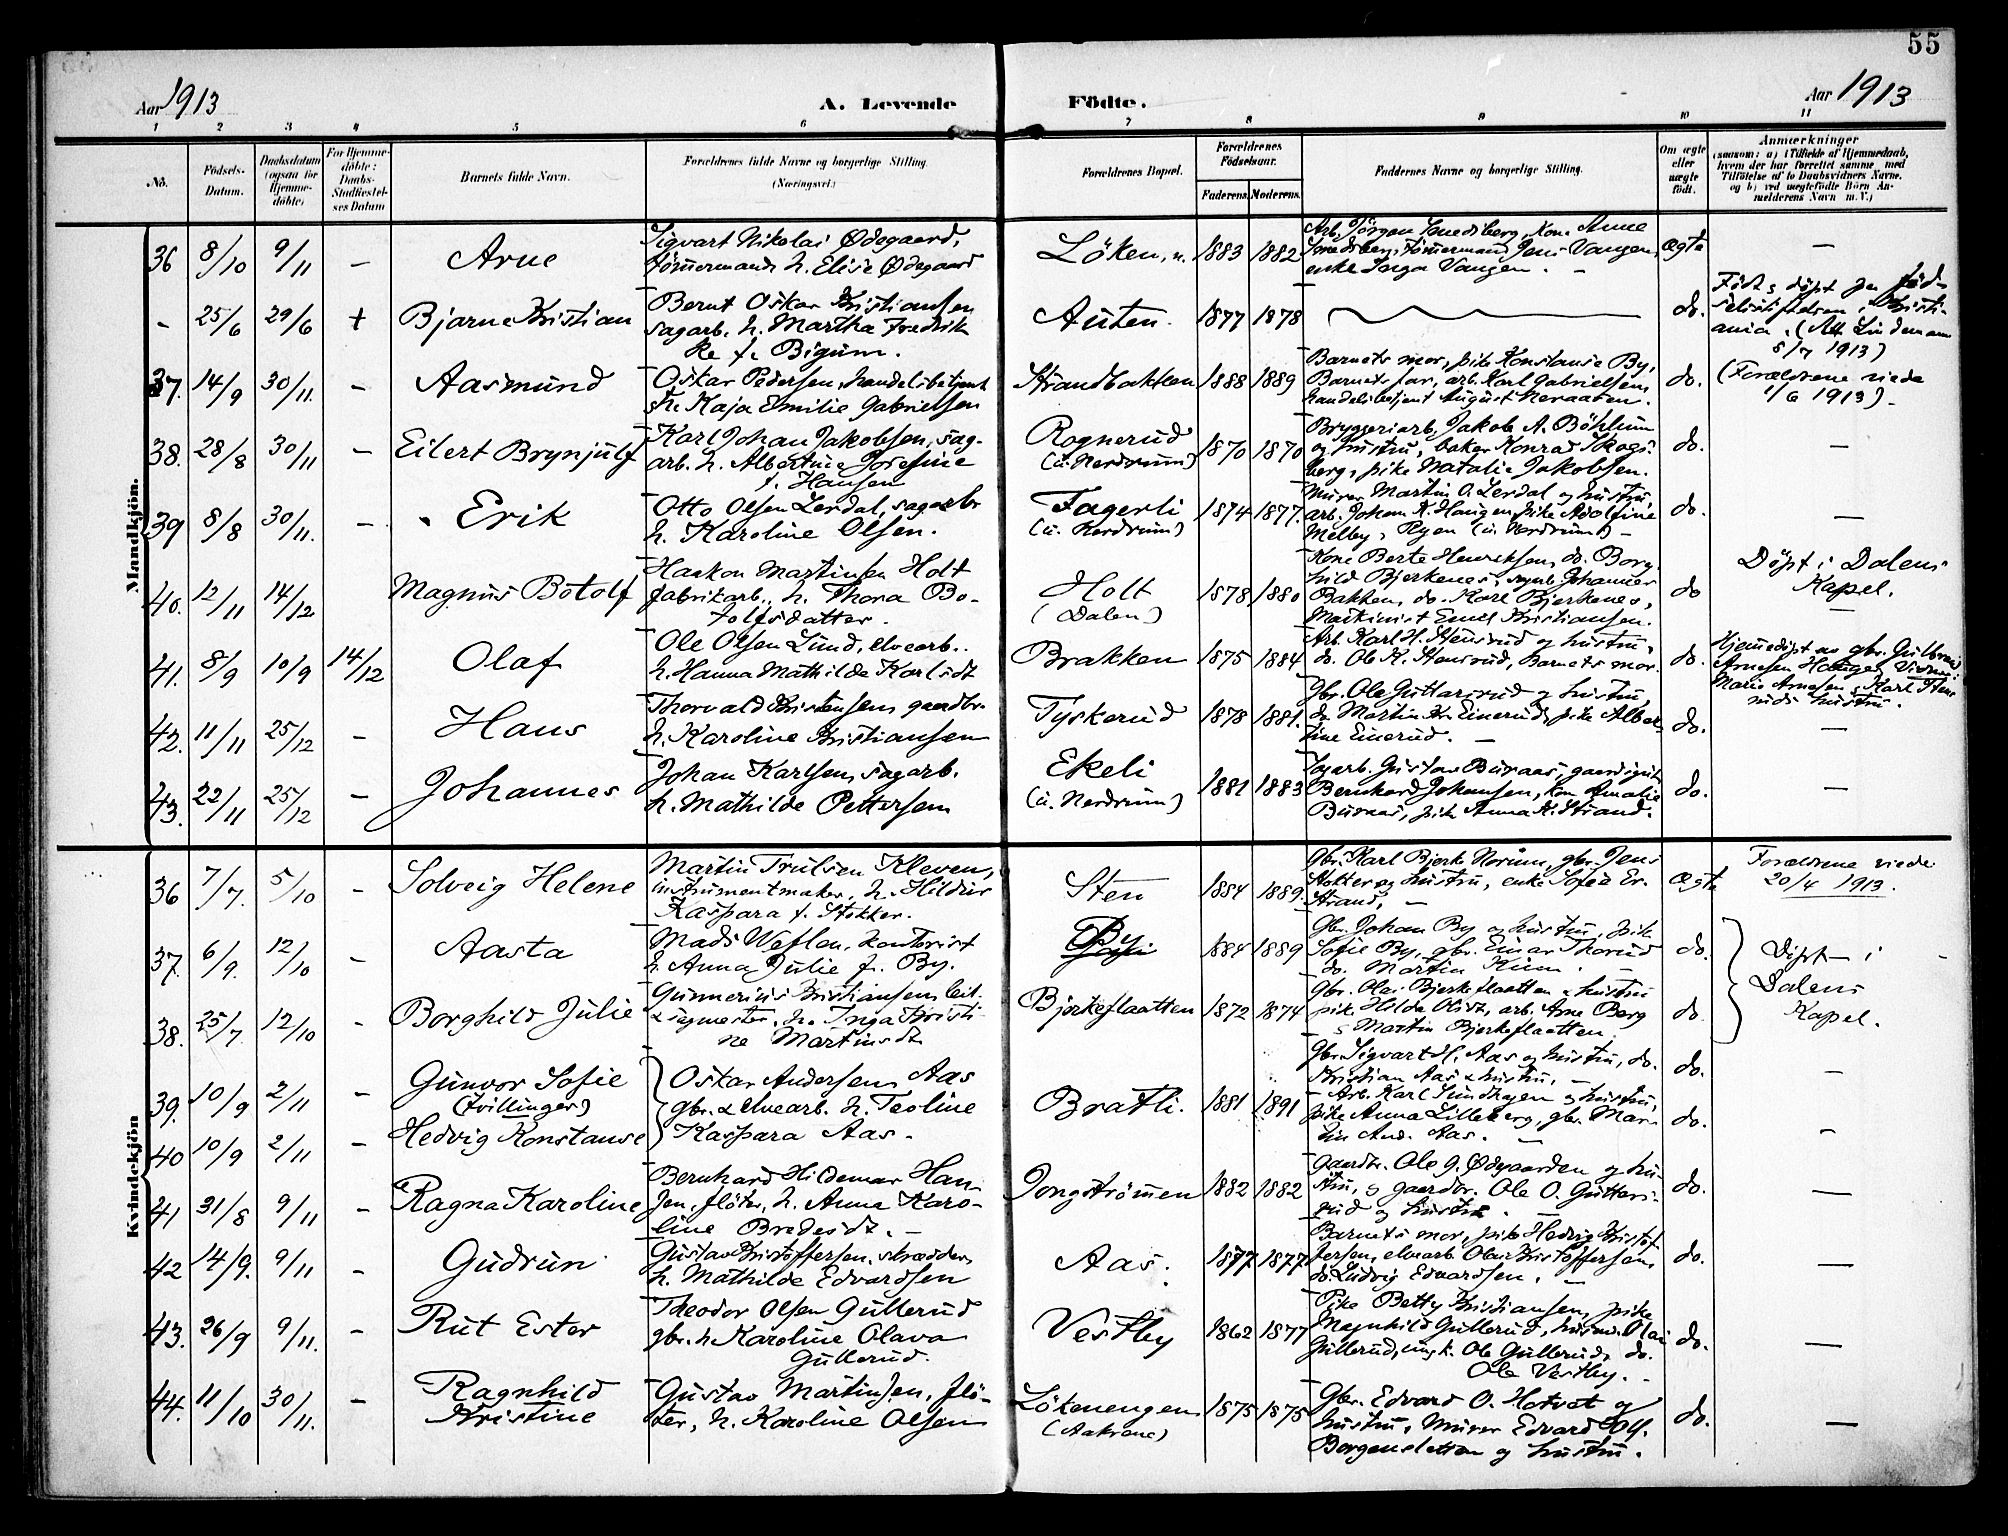 55
Aar 1913
A. Levende Födte.
Aar 1913
1 2 3 4 5 6 7 8 9 10 11
No.
Födsels-Datum.
Daabsdatum (ogsaa for Hjemme-döbte)
For Hjemme-döbte: Daabs-Stadfæstel-ses Datum
Barnets fulde Navn.
Forældrenes fulde Navne og borgerlige Stilling.
(Næringsvei.)
Forældrenes Bopæl.
Forældrenes Födselsaar.
Faderens. Moderens.
Faddernes Navne og borgerlige Stilling.
Om ægte eller uægte födt.
Anmerkninger
(saasom: a) i Tilfælde af Hjemmedaab, hvem der har forrettet samme, med Tilföielse af to Daabsvidners Navne, og b) ved uægtefödte Börn An-melderens Navn m.V.)
Mandkjön.
36 8/10 9/11 – Arne
Sigvart Nikolai Ødegaard,
tömmermand, h. Elise Ødegaard
Löken, n. 1883 1882
Arb. Jörgen Smedsberg, Kone Anne
Smedsberg, Tömmermand Jens Vangen,
enke Inga Vangen. –
ægte –
– 25/6 29/6 + Bjarne Kristian
Bernt Oskar Kristiansen
sagarb. h. Martha Fredrik
ke f. Bigum.
Auten. 1877 1878
do.
Født & døpt paa Fød-
selsstiftelsen i Kristi-
ania. (Att. Lindemann
5/7 1913)
37. 14/9 30/11. – Aasmund
Oskar Pedersen, handelsbetjent
h. Kaja Emilie Gabrielsen
Strandbakken 1888 1889
Barnets mor, pike Konstanse By,
Barnets far, arb. Karl Gabrielsen,
handelsbetjent August Neraaten.
do.
(Forældrene viede
1/6 1913)
38. 28/8 30/11 – Eilert Brynjulf
Karl Johan Jakobsen, sag-
arb. h. Albertine Josefine
f. Hansen
Rognerud
(u. Nerdrum) 1870 1870
Bryggeriarb. Jakob A. Böhlum
og hustru, baker Konrad Skogs-
berg, pike Natalie Jakobsen.
do. –
39 8/8 30/11. – Erik
Otto Olsen Lerdal, sagarb.
h. Karoline Olsen.
Fagerli
(u. Nerdrum) 1874 1877.
Murer Martin O. Lerdal og hustru,
arb. Johan K. Haugen, pike Adolfine
Melby, Ryen (u. Nerdrum) –
do. –
40. 12/11 14/12 Magnus Botolf
Haakon Martinsen Holt
fabrikarb., h. Thora Bo-
tolfsdatter.
Holt
(Dalen) 1878 1880
Kone Berte Henriksen, do. Borg
hild Bjerkenes, Johannes
Bakken, do. Karl Bjerkenes,
Maskinist Emil Kristiansen.
do
Döpt i Dalens
Kapel.
–
41. 8/9 10/9 14/12 Olaf
Ole Olsen Lund, elvearb..
h. Hanna Mathilde Karlsdt
Brakken 1875 1884
Arb. Karl H. Stensrud og hustru,
do. Ole K. Stensrud, Barnets mor.
do.
Hjemmedøpt av gbr. Gulbrand
Arnesen Hauger
Marie Arnesen & Karl Stens
ruds hustru.
42. 11/11 25/12 – Hans
Thorvald Kristensen, gaardbr.
h. Karoline Kristiansen
Tyskerud 1878 1881.
Gbr. Ole Guttersrud og hustru,
do. Martin Kr. Einerud, pike Alber
tine Einerud. –
do. –
43. 22/11 25/12 – Johannes
Johan Karlsen, sagarb.
h. Mathilde Pettersen
Ekeli
(u. Nerdrum) 1881 1883
Sagarb. Gustav Buraas, gaardsgut
Bernhard Johansen, kone Amalie
Buraas, pike Anna K. Strand.
do. –
Kvindekjön
36 7/7. 5/10 – Solveig Helene
Martin Trulsen Kleven,
instrumentmaker, h. Hildur
Kaspara f. Stokker.
Sten 1884 1889.
Gbr. Karl Bjerke Norum, gbr. Jens
Stokker og hustru, enke Sofie Er.
Strand, –
ægte
Forældrene viede
20/4 1913.
37. 6/9. 12/10 – Aasta
Mads Weflen, kontorist
h. Anna Julie f. By.
By 1884 1889
Gbr. Johan By og hustru, pike
Sofie By, gbr. Einar Thorud
do. Martin Ruud. –
do.
Döpt i
Dalens
Kapel.
38. 25/7. 12/10 – Borghild Julie
Gunnerius Kristiansen, leil.
& sagmester, h. Inga Kristi-
ne Martinsdt
Bjerkeflaatten 1872 1874
gbr. Olai Bjerkeflaatten & hustru
pike Hilda Kvist, arb. Arne Berg
& Martin Bjerkeflaatten.
do.
39. 10/9 2/11 – Gunvor Sofie
(tvillinger)
40 10/9 2/11 – Hedvig Konstanse
Oskar Andersen Aas
gbr. & elvearb. h. Teoline
Kaspara Aas.
Bratli. 1881 1891
Gbr. Sigvart H. Aas og hustru, do.
Kristian Aas & hustru, –
– Arb. Karl Sundhagen og hustru,
pike Anna Lilleberg, gbr. Mar-
tin And. Aas. –
do. –
do. –
41 31/8 9/11 – Ragna Karoline
Bernhard Hildemar Han-
sen, flöter, h. Anna Karo-
line Bredesdt. –
Jongströmmen 1882 1882
Gaardbr. Ole G. Ødegaarden og hu-
stru, & gaardbr. Ole O. Gutters-
rud og hustru.
do. –
42 14/9. 9/11 – Gudrun
Gustav Kristoffersen, skrædder
h. Mathilde Edvardsen
Aas. 1877 1877
Barnets mor, pike Hedvig Kristof
fersen, elvearb. Olaus Kristoffersen,
do. Ludvig Edvardsen. –
do. –
43. 26/9 9/11. – Rut Ester
Theodor Olsen Gullerud
gbr. h. Karoline Olava
Gullerud.
Vestby 1862 1877
Pike Betty Kristiansen, pike
Magnhild Gullerud, Olai
Gullerud, ungk. Ole Gullerud, do.
Ole Vestby. –
do. –
44. 11/10 30/11. – Ragnhild
Kristine
Gustav Martinsen, flö-
ter, h. Karoline Olsen
Lökenengen
(Aakrene) 1875 1875
Gbr. Edvard O. Hotvet og
hustru, Murer Edvard
Borgersletten og hustru.
do. –